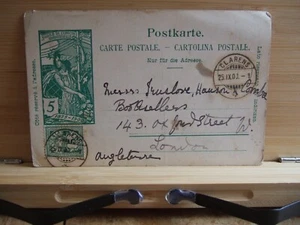 Postkarte.
CARTE POSTALE. - CARTOLINA POSTALE.
Nur für die Adresse.
5
CLARENS
Messrs Truelove, Hanson
Booksellers
143. Oxford Street W.
London
Angleterre